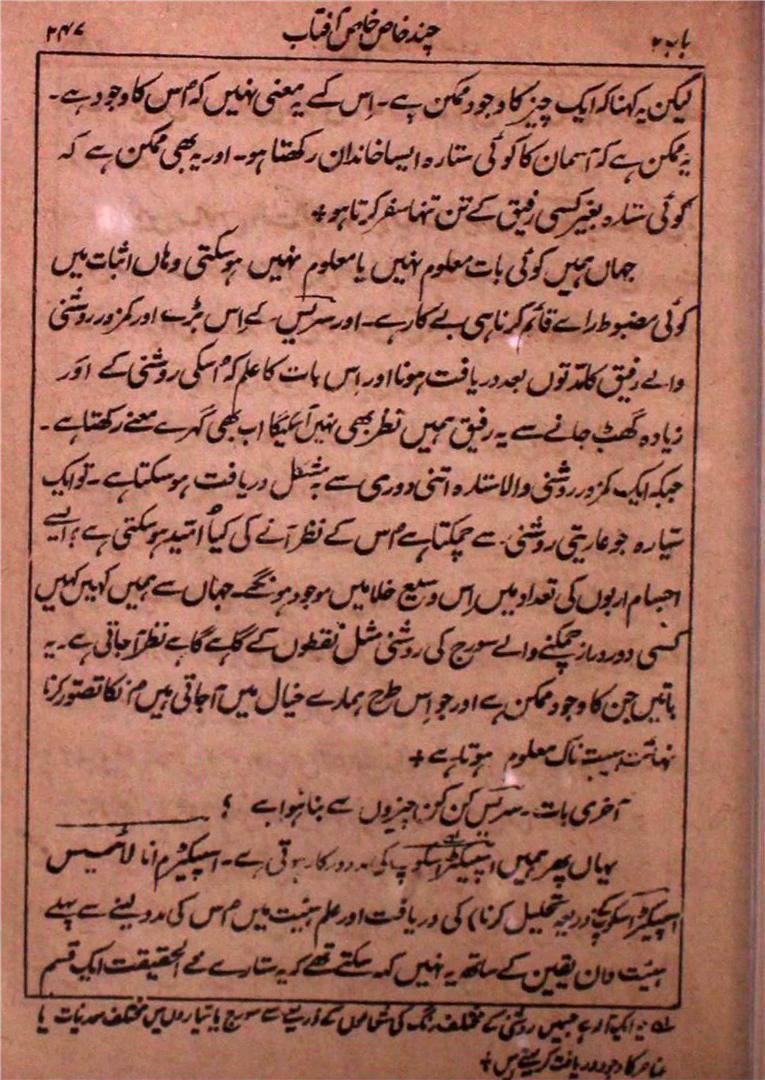 باب ۲ چند خاص خاص آفتاب ۲۴۷
لیکن یہ کہنا کہ ایک چیز کا وجود ممکن ہے۔ اِس کے یہ معنی نہیں کہ اُس کا وجود ہے۔
یہ ممکن ہے کہ آسمان کا کوئی ستارہ ایسا خاندان رکھتا ہو۔ اور یہ بھی ممکن ہے کہ
کوئی ستارہ بغیر کسی رفیق کے تن تنہا سفر کرتا ہو +
جہاں ہمیں کوئی بات معلوم نہیں یا معلوم نہیں ہو سکتی وہاں اثبات میں
کوئی مضبوط راے قائم کرنا ہی بے کار ہے۔ اور سریَس کے اِس بڑے اور کمزور روشنی
والے رفیق کا مدتوں بعد دریافت ہونا اور اِس بات کا علم کہ اُسکی روشنی کے اَور
زیادہ گھٹ جانے سے یہ رفیق ہمیں نظر بھی نہیں آئیگا اب بھی گہرے معنے رکھتا ہے۔
جبکہ ایک کمزور روشنی والا ستارہ اتنی دوری سے بہ مشکل دریافت ہو سکتا ہے۔ تو ایک
سیّارہ جو عاریتی روشنی سے چمکتا ہے اُس کے نظر آنے کی کیا اُمّید ہو سکتی ہے؟ ایسے
اجسام اربوں کی تعداد میں اِس وسیع خلا میں موجود ہونگے۔ جہاں سے ہمیں کہیں کہیں
کسی دور دراز چمکنے والے سورج کی روشنی مثل نقطوں کے گاہے گاہے نظر آجاتی ہے۔ یہ
باتیں جن کا وجود ممکن ہے اور جو اِس طرح ہمارے خیال میں آجاتی ہیں اُنکا تصوّر کرنا
نہائت ہیبت ناک معلوم ہوتا ہے +
آخری بات۔ سریَس کن کن چیزوں سے بنا ہوا ہے ؟
یہاں پھر ہمیں اسپیکٹراسکوپ کی مدد درکار ہوتی ہے۔ اسپیکٹرم انا لائسیس
اسپیکٹراسکوپ کے ذریعہ تحلیل کرنا) کی دریافت اور علم ہیئت میں اُس کی مدد لینے سے پہلے
ہیئت دان یقین کے ساتھ یہ نہیں کہہ سکتے تھے کہ یہ ستارے فے الحقیقت ایک قسم
لہ یہ ایک آلہ ہے جسمیں روشنی کے مختلف رنگ کی شعاعوں کے ذریعے سے سورج یا ستاروں میں مختلف معدنیات یا
عناصر کا وجود دریافت کر لیتے ہیں +